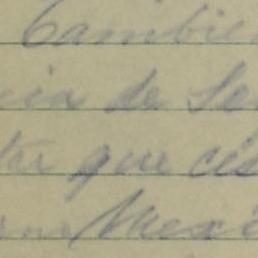 Cambie
cia de Se
tar que cis
Mexi